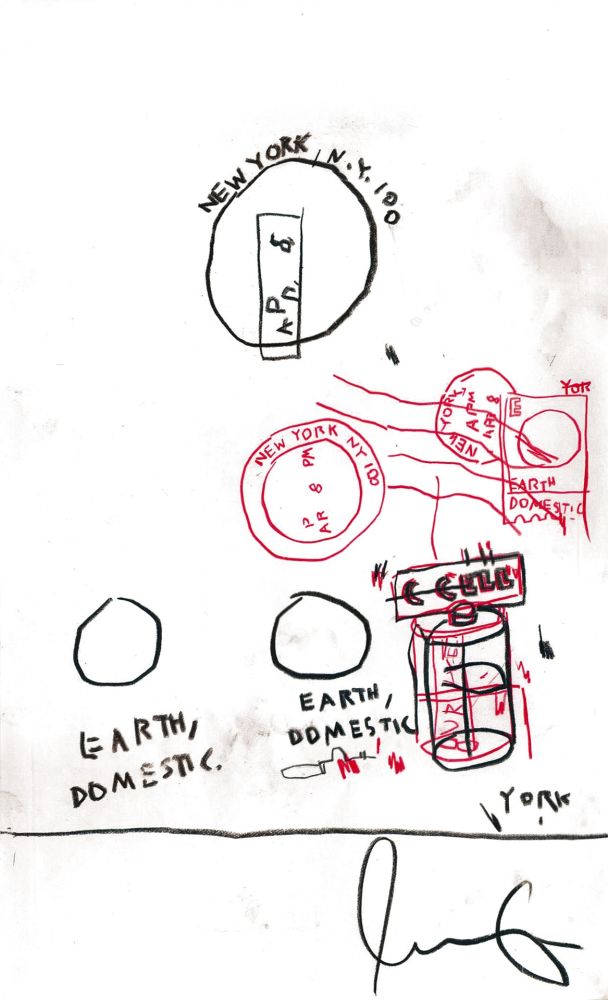 NEW YORK, N.Y. 100
APR. 8
YOR
NEW YORK
APM
AR 8
E
NEW YORK NY 100
PM
8
P
AR
EARTH
DOMESTIC
C CELL
EARTH,
DOMESTIC.
EARTH,
DOMESTIC
YORK